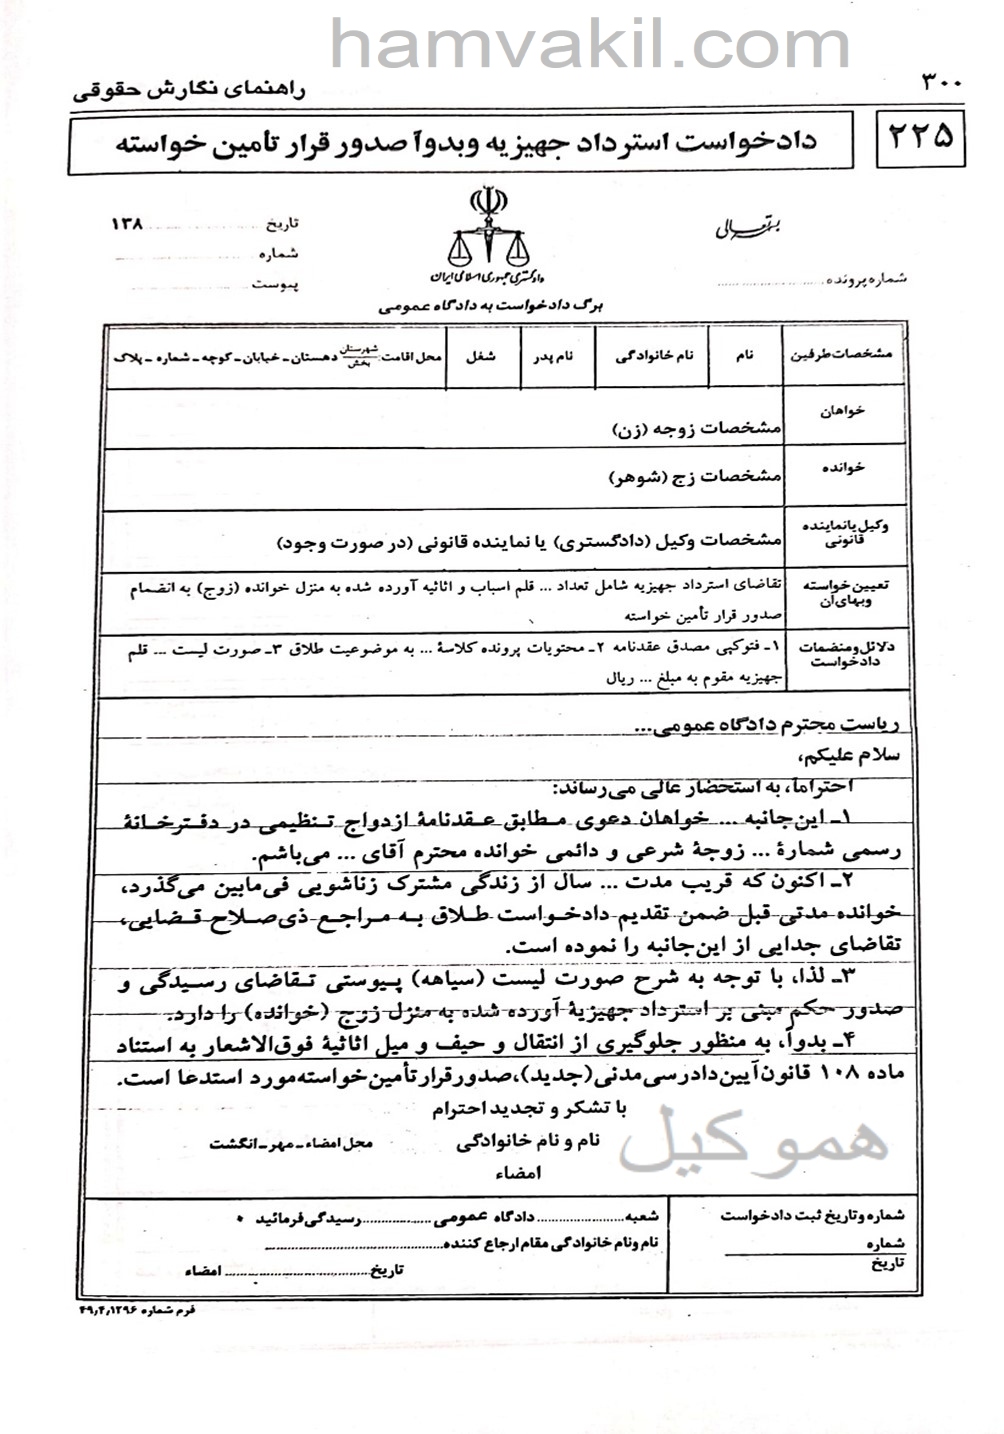 hamvakil.com
۳۰۰
راهنمای نگارش حقوقی
۲۲۵
دادخواست استرداد جهیزیه وبدواً صدور قرار تأمین خواسته
بسمه تعالی
تاریخ ......................... ۱۳۸
شماره .........................
پیوست .........................
دادگستری جمهوری اسلامی ایران
شماره پرونده .........................
برگ دادخواست به دادگاه عمومی
مشخصات طرفین
نام
نام خانوادگی
نام پدر
شغل
محل اقامت: شهرستان بخش دهستان ـ خیابان ـ کوچه ـ شماره ـ پلاک
خواهان
مشخصات زوجه (زن)
خوانده
مشخصات زج (شوهر)
وکیل یا نماینده قانونی
مشخصات وکیل (دادگستری) یا نماینده قانونی (در صورت وجود)
تعیین خواسته وبهای آن
تقاضای استرداد جهیزیه شامل تعداد ... قلم اسباب و اثاثیه آورده شده به منزل خوانده (زوج) به انضمام
صدور قرار تأمین خواسته
دلائل ومنضمات دادخواست
۱ـ فتوکپی مصدق عقدنامه ۲ـ محتویات پرونده کلاسهٔ ... به موضوعیت طلاق ۳ـ صورت لیست ... قلم
جهیزیه مقوم به مبلغ ... ریال
ریاست محترم دادگاه عمومی...
سلام علیکم،
احتراماً، به استحضار عالی می‌رساند:
۱ـ این‌جانبه ... خواهان دعوی مطابق عقدنامهٔ ازدواج تنظیمی در دفترخانهٔ
رسمی شمارهٔ ... زوجهٔ شرعی و دائمی خوانده محترم آقای ... می‌باشم.
۲ـ اکنون که قریب مدت ... سال از زندگی مشترک زناشویی فی‌مابین می‌گذرد،
خوانده مدتی قبل ضمن تقدیم دادخواست طلاق به مراجع ذی‌صلاح قضایی،
تقاضای جدایی از این‌جانبه را نموده است.
۳ـ لذا، با توجه به شرح صورت لیست (سیاهه) پیوستی تقاضای رسیدگی و
صدور حکم مبنی بر استرداد جهیزیهٔ آورده شده به منزل زوج (خوانده) را دارد.
۴ـ بدواً، به منظور جلوگیری از انتقال و حیف و میل اثاثیهٔ فوق‌الاشعار به استناد
ماده ۱۰۸ قانون آیین دادرسی مدنی (جدید)، صدور قرار تأمین خواسته مورد استدعا است.
با تشکر و تجدید احترام
نام و نام خانوادگی
محل امضاء ـ مهر ـ انگشت
امضاء
هموکیل
شماره و تاریخ ثبت دادخواست
شماره
تاریخ
شعبه...................... دادگاه عمومی ..................رسیدگی فرمائید
نام ونام خانوادگی مقام ارجاع کننده............................................
تاریخ.................................... امضاء
فرم شماره ۴۹٫۴٫۱۲۹۶